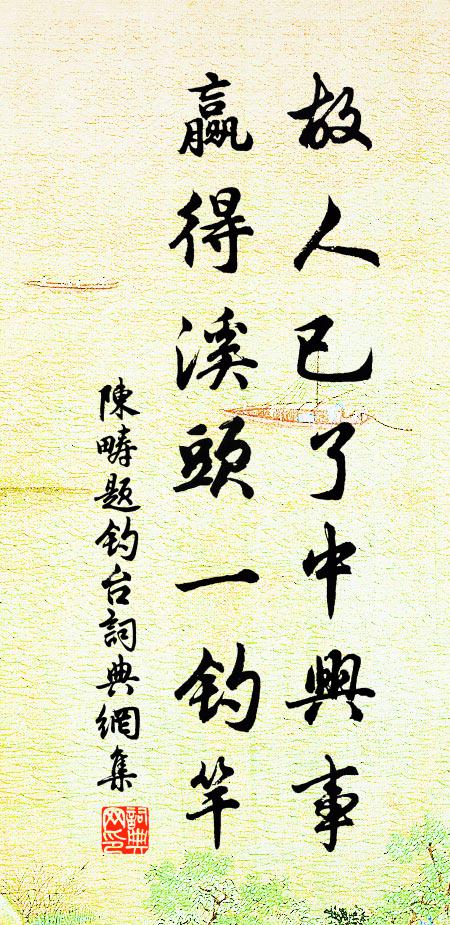 故人已了中興事
贏得溪頭一釣竿
陳疇題釣台詞典網集
詞典网印